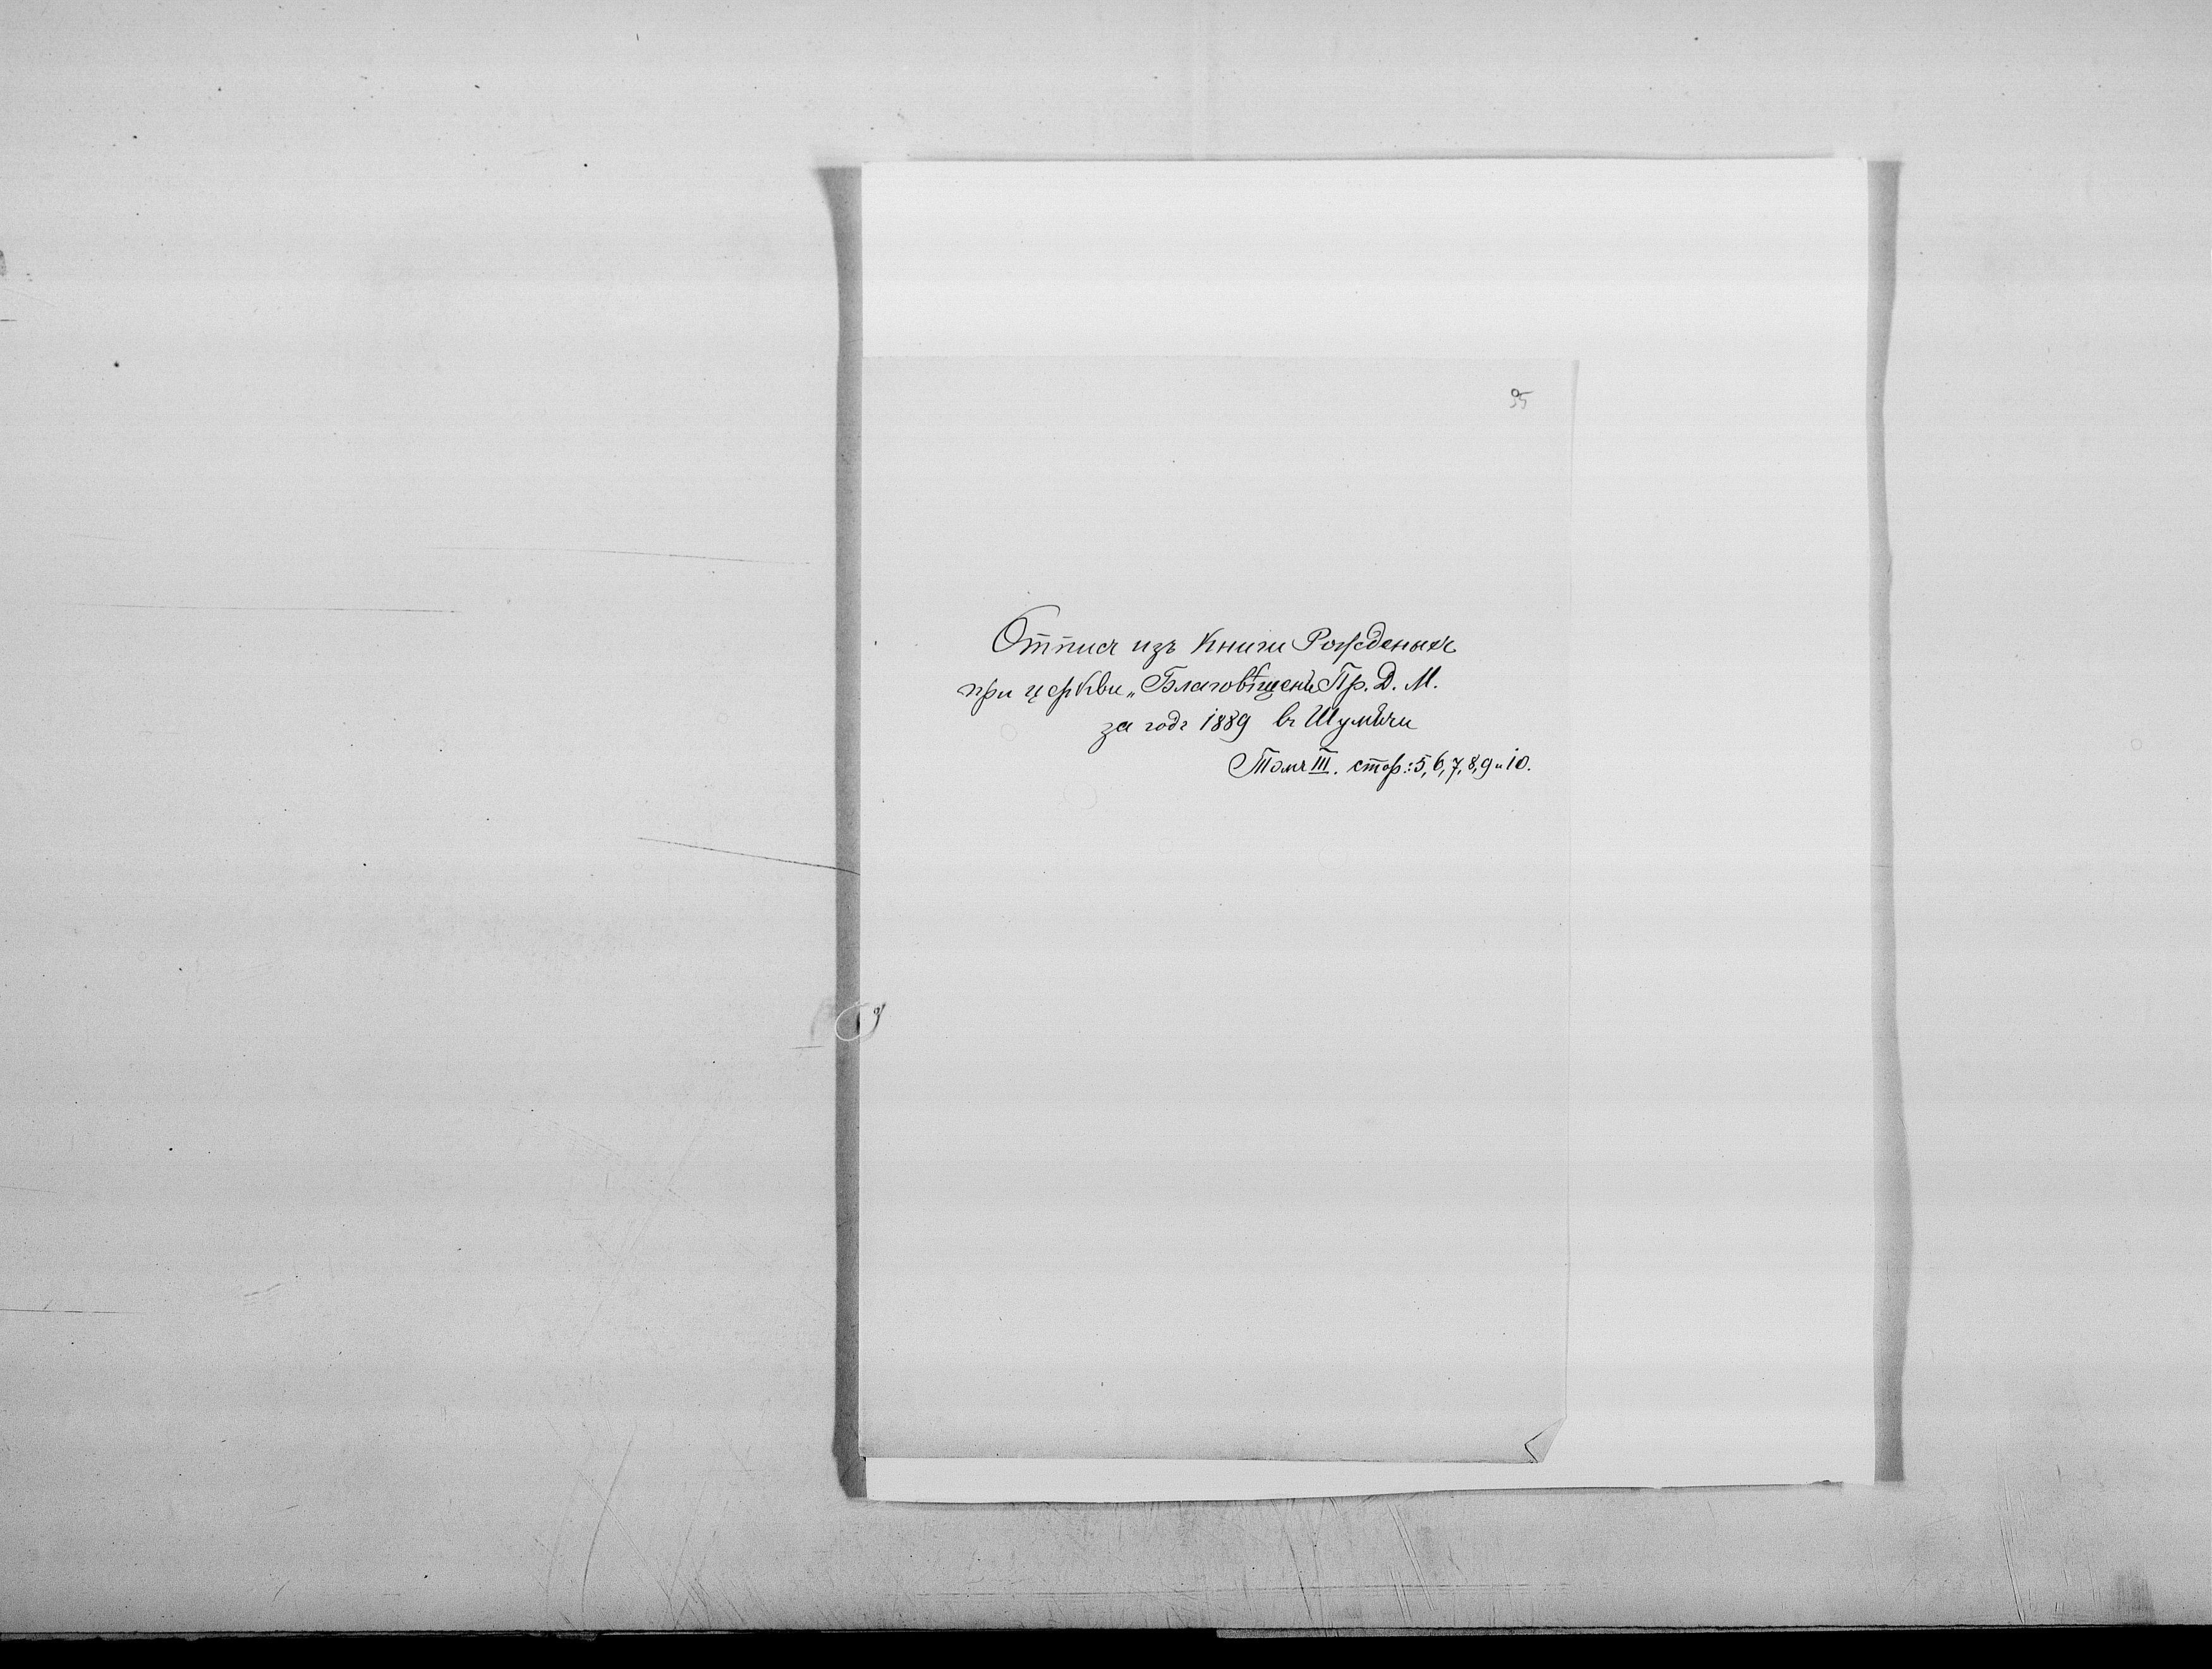 95
Отписъ изъ Книги Рожденыхъ
при церкви „Благовѣщенъ Пр. Д. М.
за годъ 1889 въ Шумѣчи
Томъ III. стор.: 5, 6, 7, 8, 9 и 10.